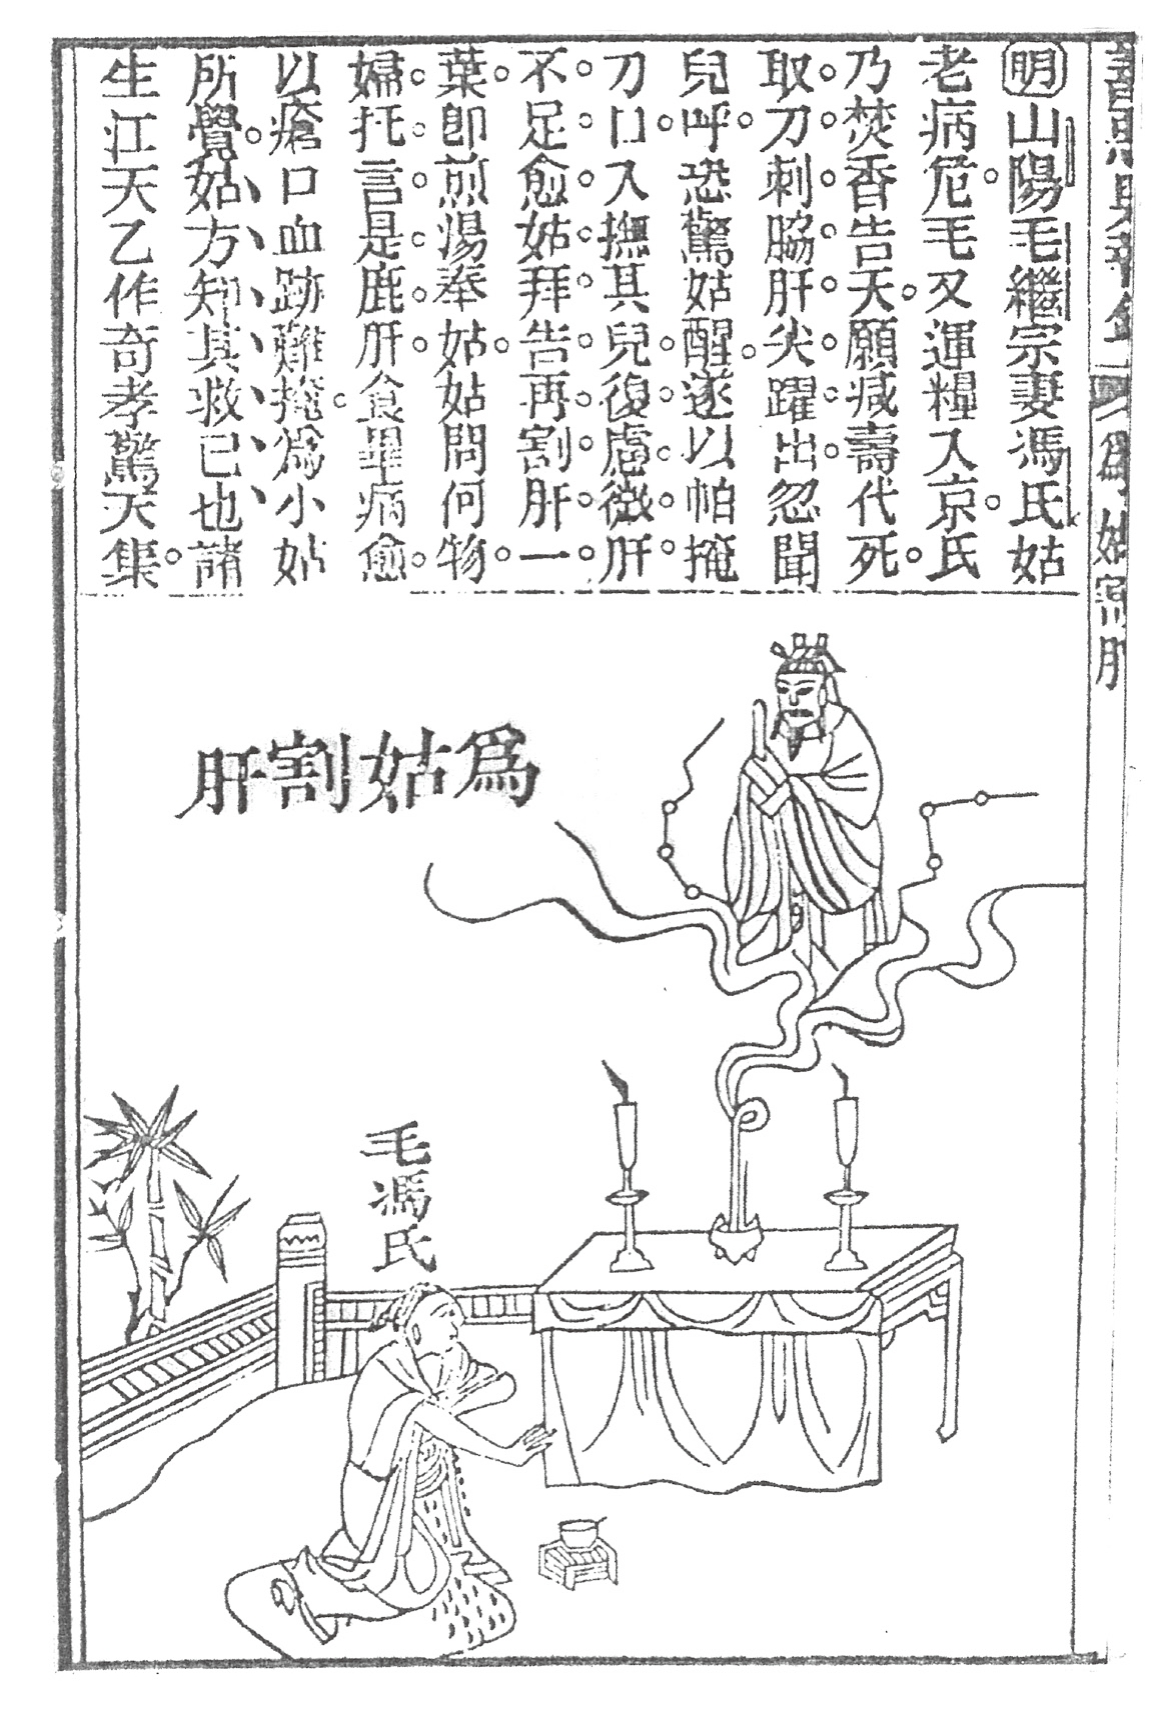 明山陽毛繼宗妻馮氏姑
老病危。毛又運糧入京。氏
乃焚香告天。願減壽代死。
取刀刺脇肝尖躍出忽聞
兒呼恐驚姑醒遂以帕掩
刀口入撫其兒復慮微肝
不足愈姑拜告再割肝一
葉即煎湯奉姑姑問何物
婦托言是鹿肝食畢病愈
以瘡口血跡難掩。為小姑
所覺。姑方知其救已也諸
生江天乙作奇孝驚天集。
為姑割肝
為姑割肝
毛馮氏